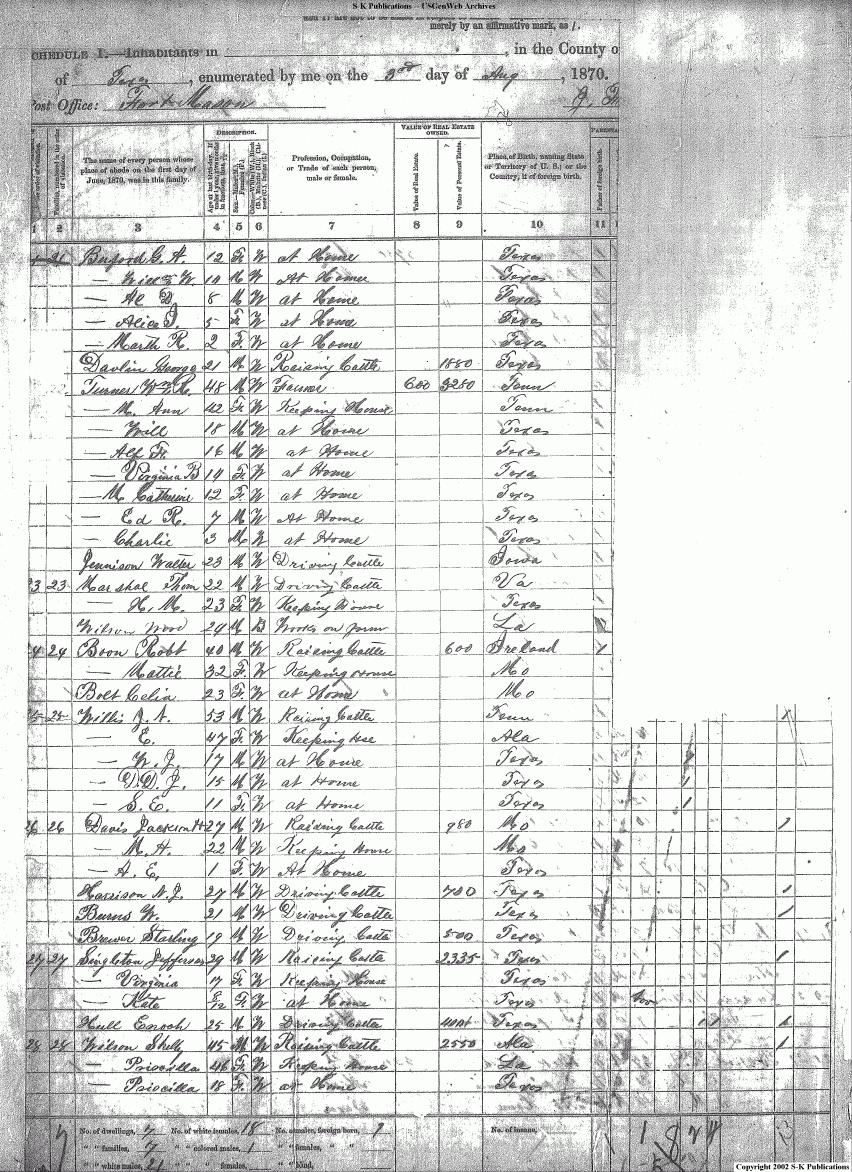 S-K Publications - USGenWeb Archives
merely by an affirmative mark, as /.
CHEDULE 1.—Inhabitants in , in the County o
of Texas, enumerated by me on the 3rd day of Aug, 1870.
Post Office: Fort Mason
DESCRIPTION. VALUE OF REAL ESTATE OWNED.
The name of every person whose place of abode on the first day of June, 1870, was in this family.
Profession, Occupation, or Trade of each person, male or female.
Value of Real Estate.
Value of Personal Estate.
Place of Birth, naming State or Territory of U. S.; or the Country, if of foreign birth.
Father of foreign birth.
1 2 3 4 5 6 7 8 9 10 11
21 Buford G. A. 12 F W at Home Texas
— W. 14 M W At Home Texas
— Al D. 8 M W at Home Texas
— Alice J. 5 F W at Home Texas
— Marth R. 2 F W at Home Texas
Davlin George 21 M W Raising Cattle 1880 Texas
Turner Wm R. 48 M W Farmer 600 3280 Tenn
— M. Ann 42 F W Keeping House Tenn
— Will 18 M W at Home Texas
— Alf F. 16 M W at Home Texas
— Virginia B 14 F W at Home Texas
— M. Catherine 12 F. W at Home Texas
— Ed R. 7 M W At Home Texas
— Charlie 3 M W at Home Texas
Jennison Walter 23 M W Driving Cattle Iowa
23 23 Marshal Thom 22 M W Driving Cattle Va
— H. M. 23 F. W Keeping House Texas
Wilson Wood 24 M B Works on farm La
24 24 Boon Robt 40 M W Raising Cattle 600 Ireland 1
— Mattie 32 F. W Keeping House Mo
Bolt Celia 23 F. W at Home Mo
25 25 Willis J. N. 53 M W Raising Cattle Tenn 1
— E. 47 F. W Keeping Hse Ala
— W. J. 17 M W at Home Texas
— D. D. J. 15 M W at Home Texas 1
— S. E. 11 F W at Home Texas 1
26 26 Davis Jackson H 27 M W Raising Cattle 980 Mo 1
— M. A. 22 W Keeping House Mo
— A. E. 1 F. W At Home Texas
Harrison N. J. 27 M W Driving Cattle 700 Texas 1
Burns W. 21 M W Driving Cattle Texas 1
Brewer Starling 19 M W Driving Cattle 500 Texas
27 27 Singleton Jefferson 29 M W Raising Cattle 2335 Texas 1
— Virginia 17 F. W Keeping House Texas
— Kate 8/12 F. W at Home Texas
Hull Enoch 25 M W Driving Cattle Texas
28 28 Wilson Shelf 45 M W Raising Cattle 2550 Ala 1
— Priscilla 46 F. W Keeping House La
— Priscilla 18 F. W at Home Texas
No. of dwellings, 7 No. of white females, 18 No. of males, foreign born, 1 No. of insane,
" " families, 7 " " colored males, 1 " " females, "
" " white males, 21 " " " females, " " blind,
Copyright 2002 S-K Publications